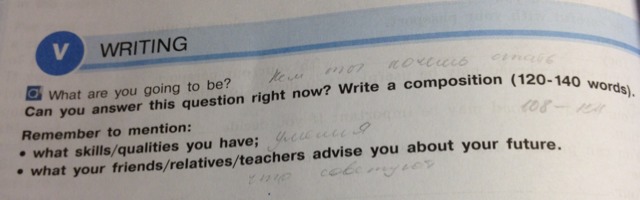 V WRITING
a What are you going to be? Кем ты хочешь стать
Can you answer this question right now? Write a composition (120-140 words).
108 –
Remember to mention:
• what skills/qualities you have; умения
• what your friends/relatives/teachers advise you about your future.
что советуют